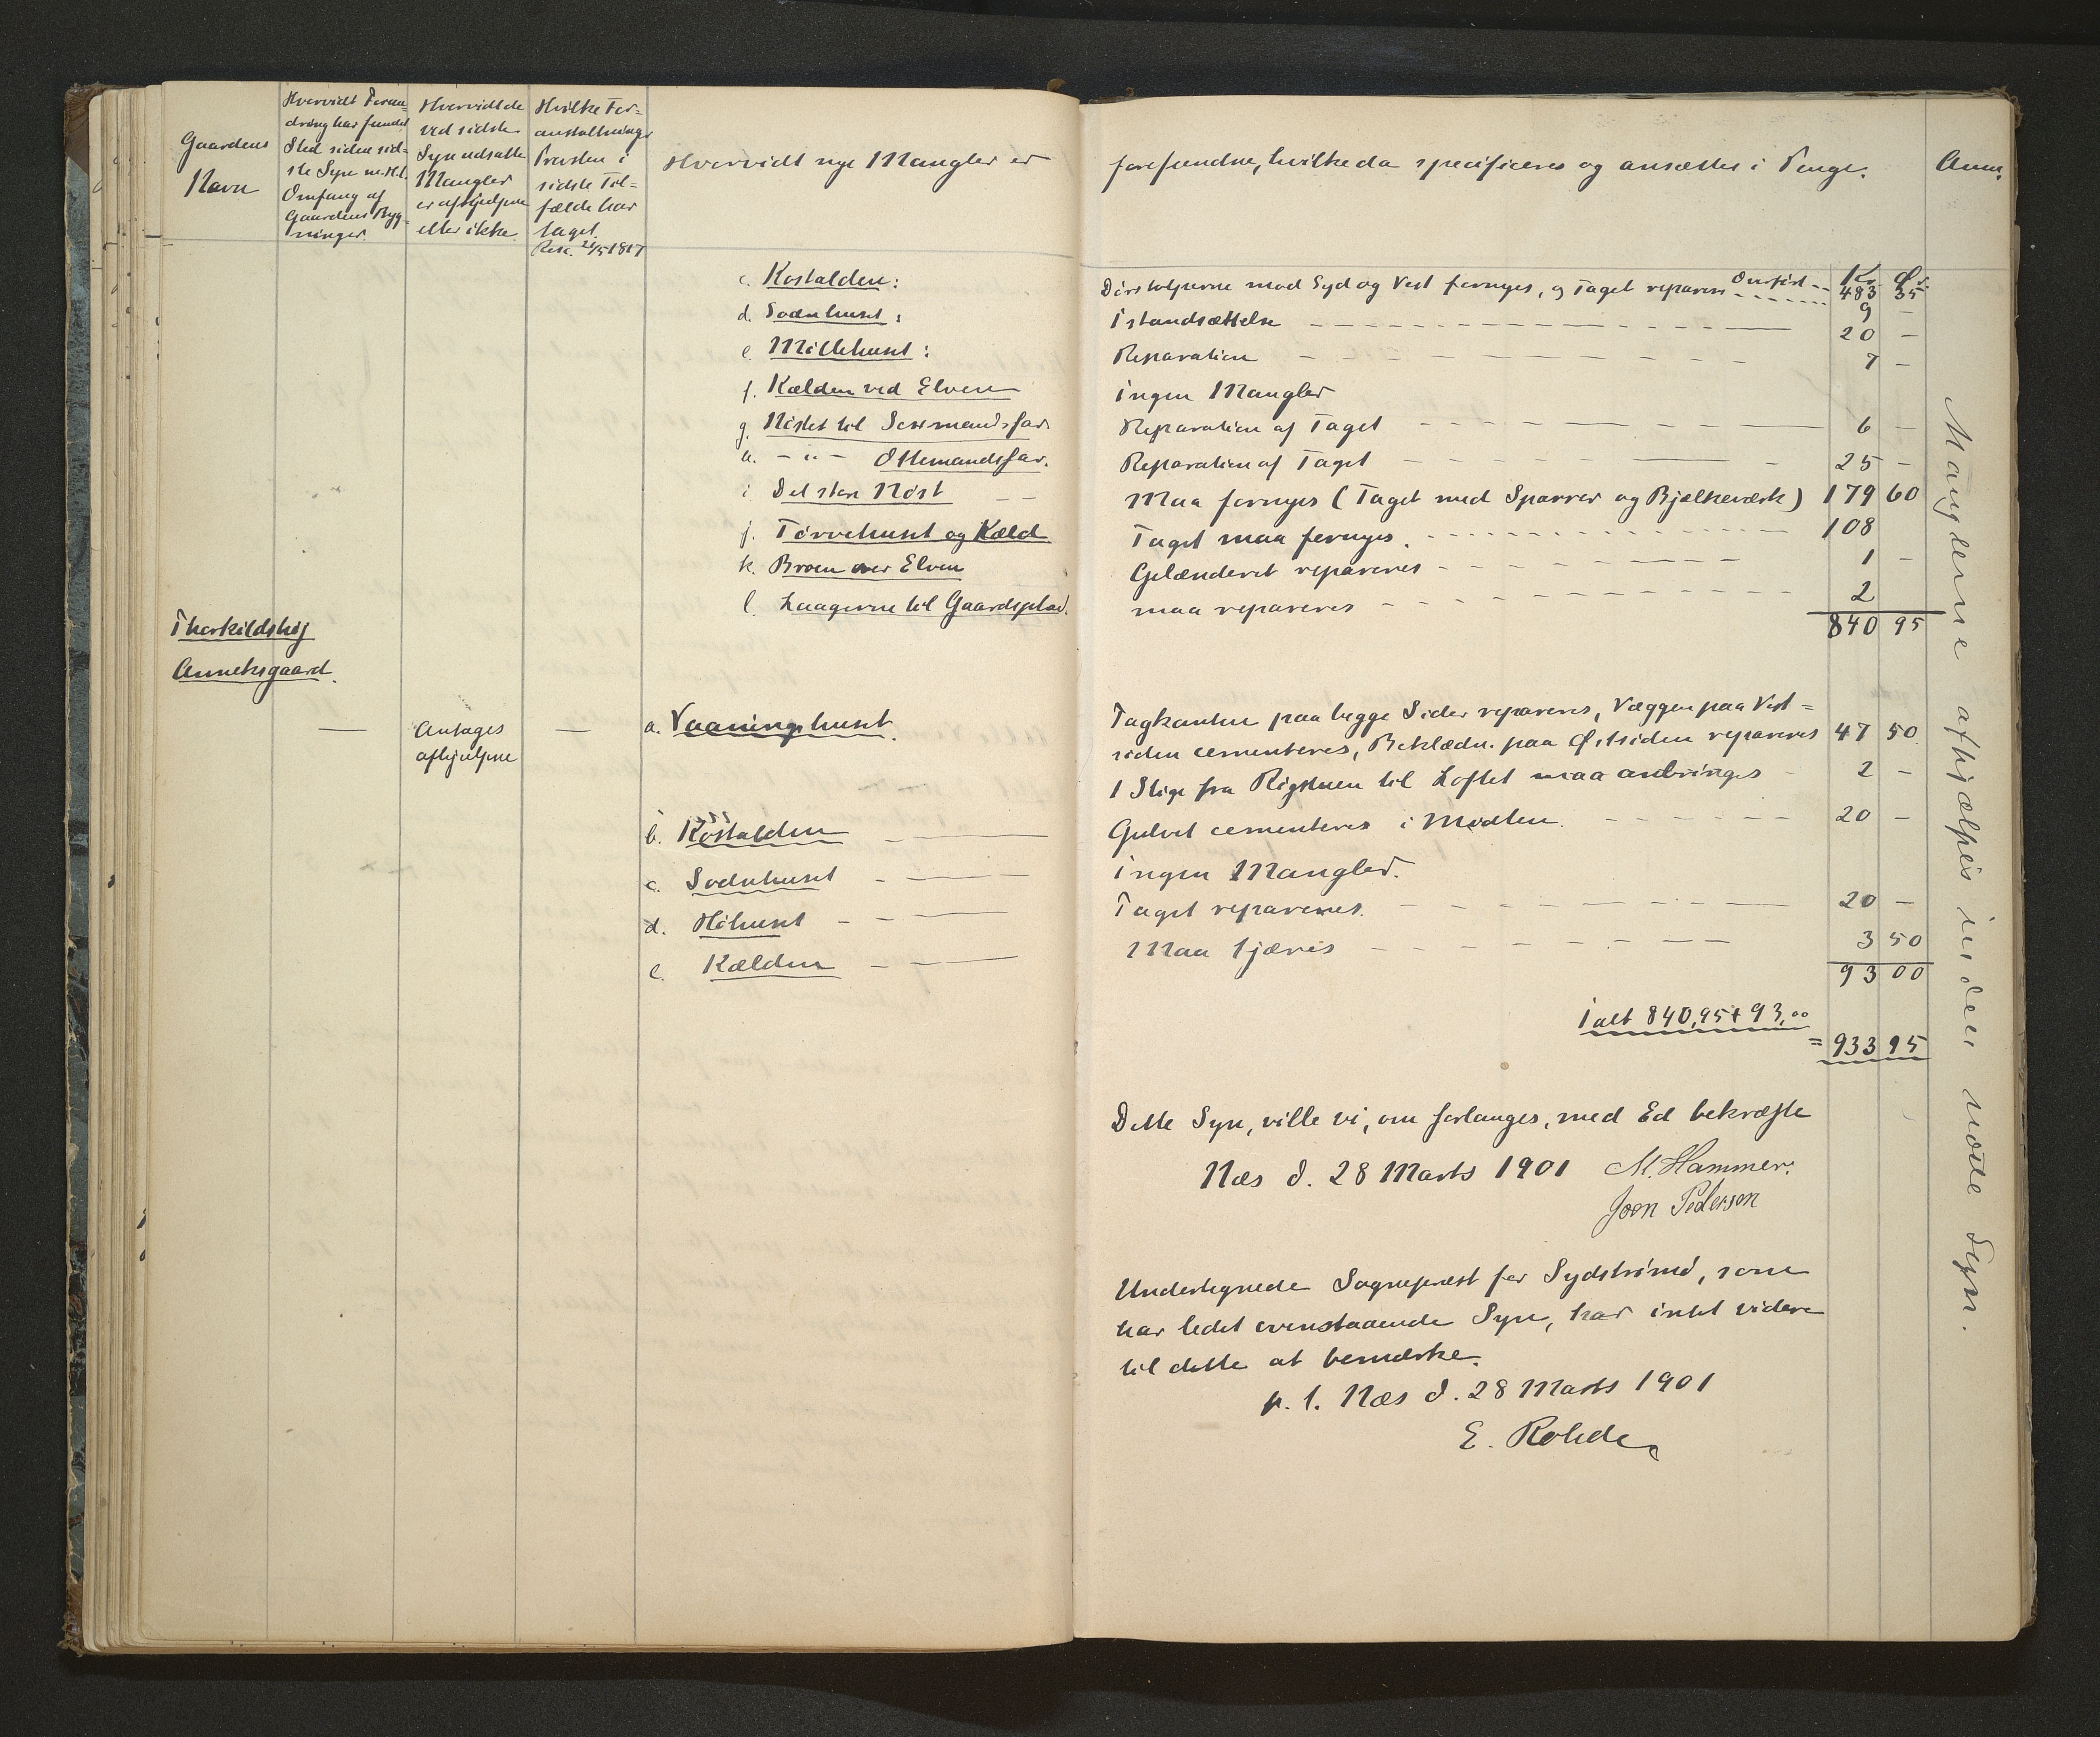 Gaardens
Navn
Hvorvidt Foran=
dring har fundet
Sted siden sid=
ste Syn m. H. t.
Omfang af
Gaardens Byg=
ninger.
Hvorvidt de
ved sidste
Syn udsatte
Mangler
er afhjulpne
eller ikke
Hvilke For=
anstaltninger
Provsten i
sidste Til=
fælde har
taget.
Resc. 21/5 1817
Hvorvidt nye Mangler er
forefundne, hvilke da specificeres og ansættes i Penge.
Anm.
Overført -- Kr. Ø.
483 35
c. Kostalden: Dørstolperne mod Syd og Vest fornyes, og Taget repareres ------ 9 —
d. Sodnhuset: Istandsættelse 20 —
e. Møllehuset: Reparation 7 —
f. Kælden ved Elven ingen Mangler
g. Nøstet til Seksmandsfar. Reparation af Taget 6 —
h. — " — Ottemandsfar. Reparation af Taget 25 —
i Det store Nøst Maa fornyes (Taget med Sparrer og Bjælkeværk) 179 60
j. Tørvehuset og Kæld Taget maa fornyes. 108
k. Broen over Elven Gelænderet repareres 1 —
l. Laagerne til Gaardsplad. maa repareres 2
840 95
Therkildshøj
Anneksgaard.
— Antages
afhjulpne —
a. Vaaningshuset. Tagkanten paa begge Sider repareres, Væggen paa Vest=
siden cementeres, Beklædn. paa Østsiden repareres 47 50
1 Stige fra Røgstuen til Loftet maa anbringes 2 —
b. Kostalden Gulvet cementeres i Midten. 20 —
c. Sodnhuset ingen Mangler.
d. Høhuset Taget repareres. 20 —
e. Kælden Maa tjæres 3 50
93 00
ialt 840,95 + 93,00
= 933 95
Manglerne afhjælpes inden næste Syn.
Dette Syn, ville vi, om forlanges, med Ed bekræfte
Næs d. 28 Marts 1901 M. Hammer.
Joen Pedersen
Undertegnede Sognepræst for Sydstrømø, som
har ledet ovenstaaende Syn, har intet videre
til dette at bemærke.
p. t. Næs d. 28 Marts 1901
E. Rohde